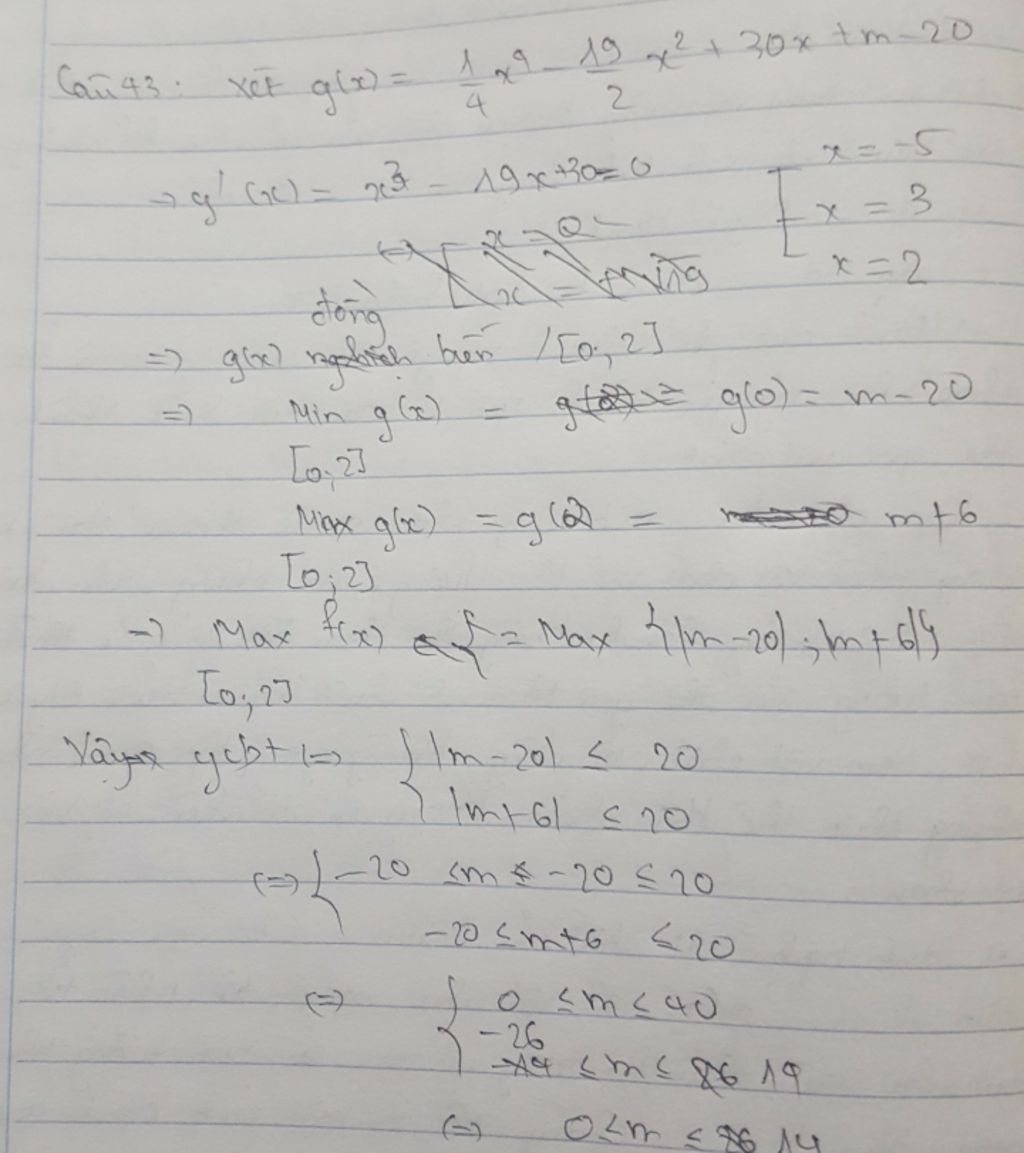 Câu 43: xét g(x) = 1/4 x⁴ - 19/2 x² + 30x + m - 20
→ g'(x) = x³ - 19x + 30 = 0 [ x = -5
x = 3
x = 2
đồng
=> g(x) biến / [0; 2]
=> Min g(x) = g(0) = m - 20
[0; 2]
Max g(x) = g(2) = m + 6
[0; 2]
=> Max f(x) = Max {|m - 20| ; |m + 6|}
[0; 2]
Vậy ycbt <=> { |m - 20| ≤ 20
|m + 6| ≤ 20
<=> { -20 ≤ m - 20 ≤ 20
-20 ≤ m + 6 ≤ 20
<=> { 0 ≤ m ≤ 40
-26 ≤ m ≤ 14
<=> 0 ≤ m ≤ 14